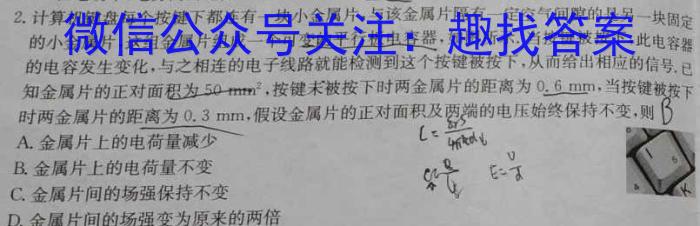 微信公众号关注：趣找答案
2. 计算机键盘每个按键下都连有一块小金属片，与该金属片隔有一定空气间隙的是另一块固定
的小金属片
电容器
此电容器
的电容发生变化，与之相连的电子线路就能检测到这个按键被按下，从而给出相应的信号.已
知金属片的正对面积为 50 mm²，按键未被按下时两金属片的距离为 0.6 mm，当按键被按下
时两金属片的距离为 0.3 mm，假设金属片的正对面积及两端的电压始终保持不变，则 B
A. 金属片上的电荷量减少
B. 金属片上的电荷量不变
C. 金属片间的场强保持不变
D. 金属片间的场强变为原来的两倍